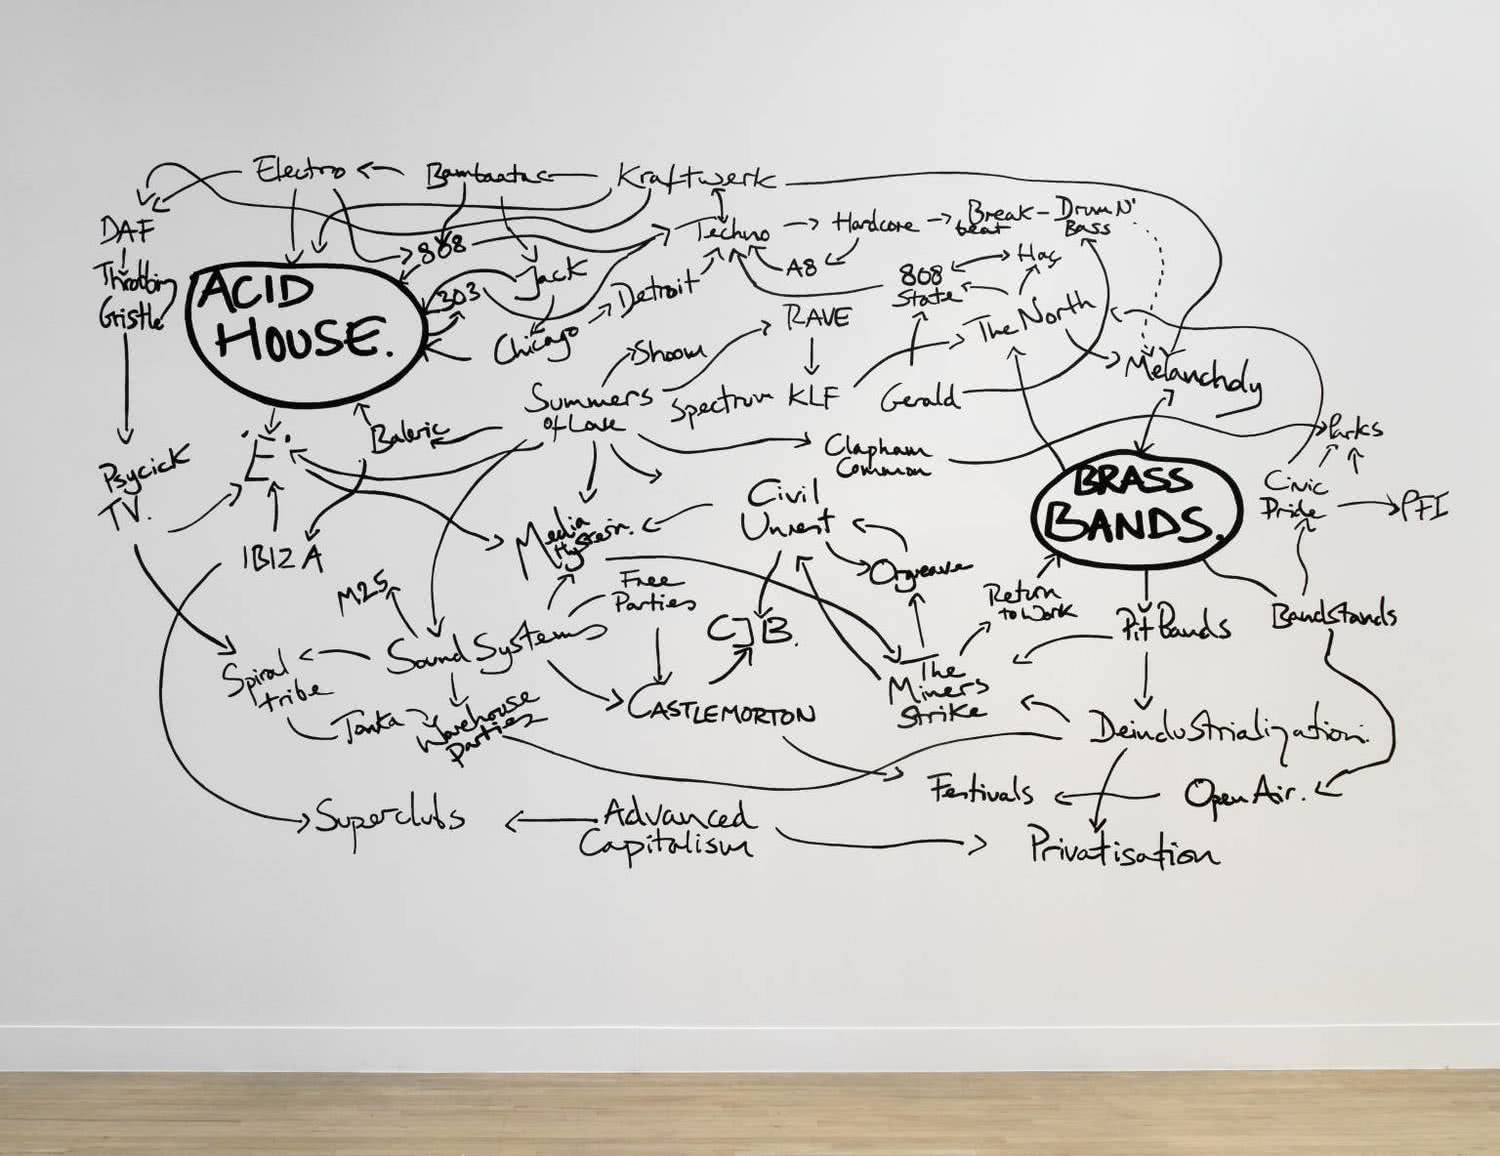 Electro
Bambaataa
Kraftwerk
DAF
808
Techno
Hardcore
Break-
beat
Drum N'
Bass
Throbbing
Gristle
ACID
HOUSE.
303
Jack
Detroit
A8
808
State
Haç
Chicago
RAVE
The North
Shoom
Melancholy
Summers
of Love
Spectrum
KLF
Gerald
Baleric
'E'.
Clapham
Common
Parks
Psycick
TV.
Civil
Unrest
BRASS
BANDS.
Civic
Pride
PFI
IBIZA
Media
Hysteria.
Orgreave
M25
Free
Parties
Return
to Work
Pit Bands
Bandstands
Sound Systems
CJB.
Spiral
tribe
The
Miners
Strike
Tonka
Warehouse
Parties
CASTLEMORTON
Deindustrialization.
Festivals
Open Air.
Superclubs
Advanced
Capitalism
Privatisation